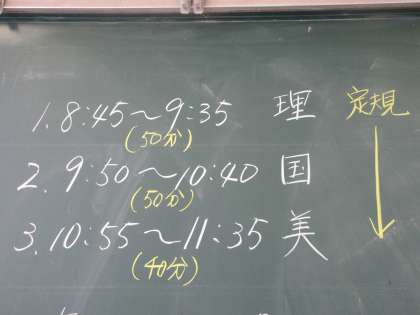 1. 8:45〜9:35 理 定規
(50分)
2. 9:50〜10:40 国
(50分)
3. 10:55〜11:35 美
(40分)